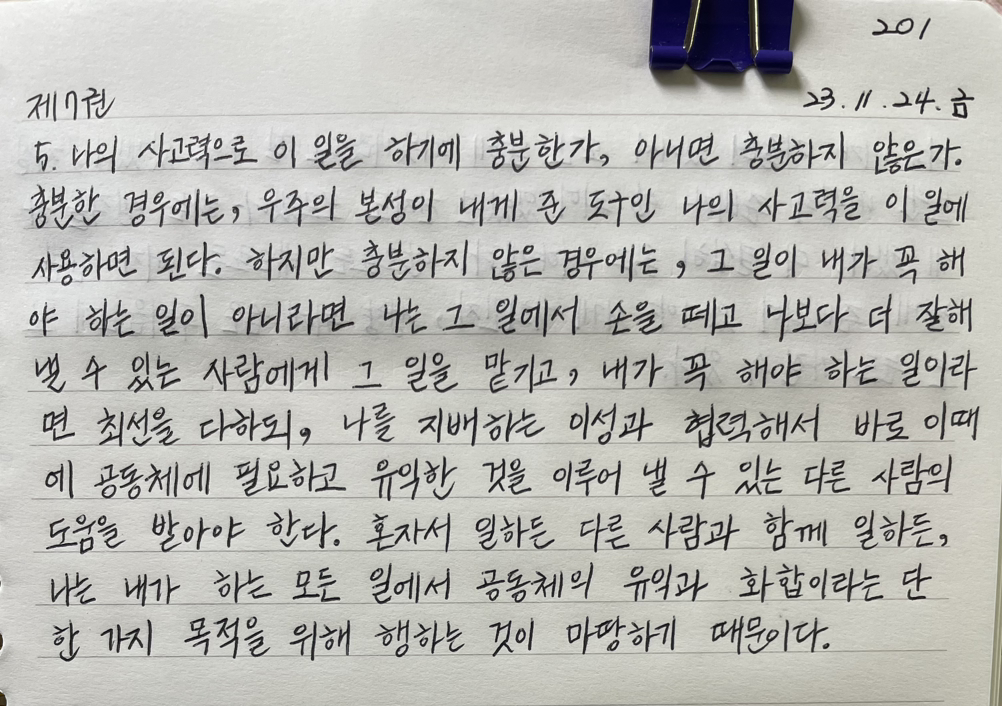 201
제7권 23.11.24.금
5. 나의 사고력으로 이 일을 하기에 충분한가, 아니면 충분하지 않은가.
충분한 경우에는, 우주의 본성이 내게 준 도구인 나의 사고력을 이 일에
사용하면 된다. 하지만 충분하지 않은 경우에는, 그 일이 내가 꼭 해
야 하는 일이 아니라면 나는 그 일에서 손을 떼고 나보다 더 잘해
낼 수 있는 사람에게 그 일을 맡기고, 내가 꼭 해야 하는 일이라
면 최선을 다하되, 나를 지배하는 이성과 협력해서 바로 이때
에 공동체에 필요하고 유익한 것을 이루어 낼 수 있는 다른 사람의
도움을 받아야 한다. 혼자서 일하든 다른 사람과 함께 일하든,
나는 내가 하는 모든 일에서 공동체의 유익과 화합이라는 단
한 가지 목적을 위해 행하는 것이 마땅하기 때문이다.